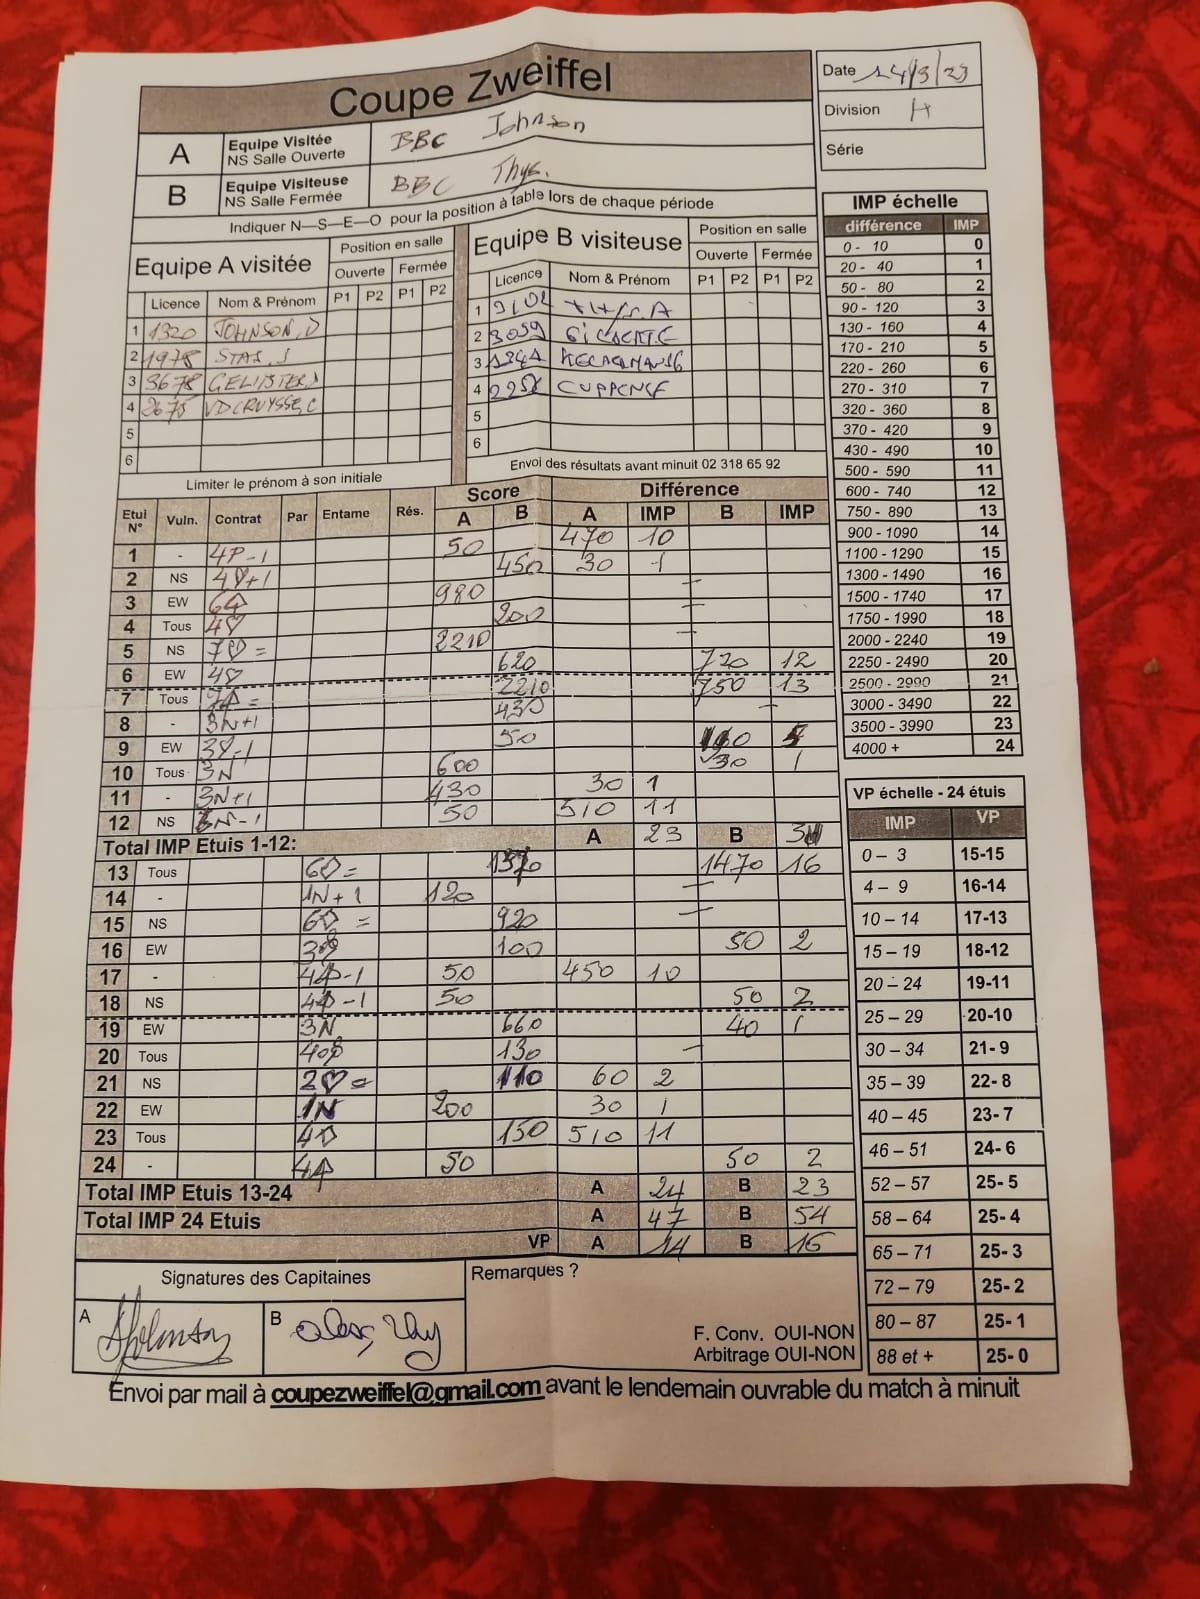 Coupe Zweiffel
Date 14/3/23
Division H
Série
A Equipe Visitée NS Salle Ouverte BBC Johnson
B Equipe Visiteuse NS Salle Fermée BBC Thys.
Indiquer N—S—E—O pour la position à table lors de chaque période
Equipe A visitée Position en salle
Ouverte Fermée
Licence Nom & Prénom P1 P2 P1 P2
1 1320 JOHNSON.D
2 1978 STAS.J
3 3678
4 VDCRUYSSE.C
5
6
Limiter le prénom à son initiale
Equipe B visiteuse Position en salle
Ouverte Fermée
Licence Nom & Prénom P1 P2 P1 P2
1
2 3059
3
4
5
6
Envoi des résultats avant minuit 02 318 65 92
IMP échelle
différence IMP
0 - 10 0
20 - 40 1
50 - 80 2
90 - 120 3
130 - 160 4
170 - 210 5
220 - 260 6
270 - 310 7
320 - 360 8
370 - 420 9
430 - 490 10
500 - 590 11
600 - 740 12
750 - 890 13
900 - 1090 14
1100 - 1290 15
1300 - 1490 16
1500 - 1740 17
1750 - 1990 18
2000 - 2240 19
2250 - 2490 20
2500 - 2990 21
3000 - 3490 22
3500 - 3990 23
4000 + 24
Score Différence
Etui N° Vuln. Contrat Par Entame Rés. A B A IMP B IMP
1 - 4P-1 50 470 10
2 NS 4♡+1 450 30 1
3 EW 6♤ 980 –
4 Tous 4♡ 200 –
5 NS 7♡ = 2210 –
6 EW 4♡ 620 720 12
7 Tous 7♤ = 2210 750 13
8 - 3N+1 430 –
9 EW 3♡-1 50
10 Tous 3N 600 30 1
11 - 3N+1 430 30 1
12 NS 50 510 11
Total IMP Etuis 1-12: A 23 B
13 Tous 6♢ = 1370 1470 16
14 - 1N+1 120 –
15 NS 6♢ = 920 –
16 EW 100 50 2
17 - 4♤-1 50 450 10
18 NS 4♤-1 50 50 2
19 EW 3N 660 40 1
20 Tous 130 –
21 NS 2♡ = 110 60 2
22 EW 1N 200 30 1
23 Tous 150 510 11
24 - 4♤ 50 50 2
Total IMP Etuis 13-24 A 24 B 23
Total IMP 24 Etuis A 47 B 54
VP A 14 B 16
VP échelle - 24 étuis
IMP VP
0 – 3 15-15
4 – 9 16-14
10 – 14 17-13
15 – 19 18-12
20 – 24 19-11
25 – 29 20-10
30 – 34 21- 9
35 – 39 22- 8
40 – 45 23- 7
46 – 51 24- 6
52 – 57 25- 5
58 – 64 25- 4
65 – 71 25- 3
72 – 79 25- 2
80 – 87 25- 1
88 et + 25- 0
Signatures des Capitaines
A
B
Remarques ?
F. Conv. OUI-NON
Arbitrage OUI-NON
Envoi par mail à coupezweiffel@gmail.com avant le lendemain ouvrable du match à minuit